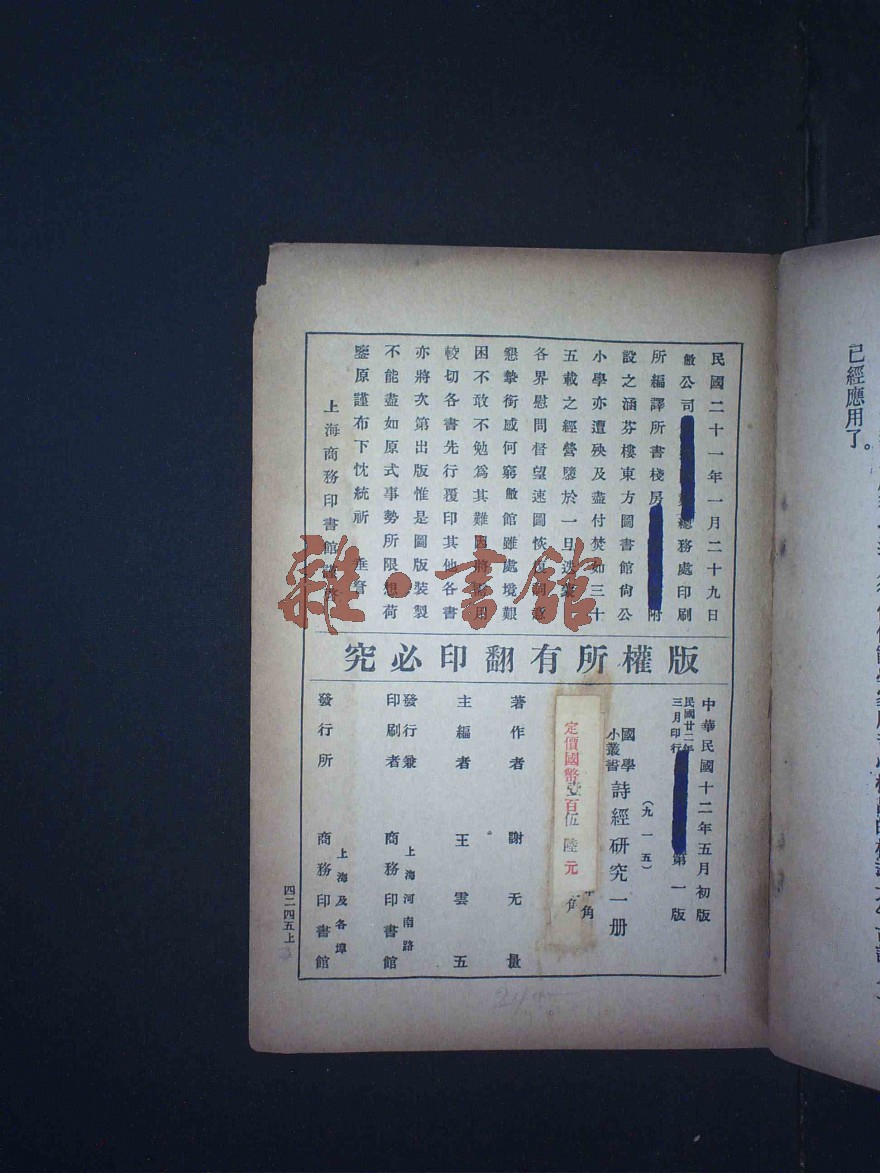 已經應用了。
民國二十一年一月二十九日
敝公司總務處印刷
所編譯所書棧房附
設之涵芬樓東方圖書館尙公
小學亦遭殃及盡付焚如三十
五載之經營隳於一旦迭蒙
各界慰問督望速圖恢復詞意
懇摯銜感何窮敝館雖處境艱
困不敢不勉爲其難因將需用
較切各書先行覆印其他各書
亦將次第出版惟是圖版裝製
不能盡如原式事勢所限想荷
鑒原謹布下忱統祈 垂詧
上海商務印書館謹啓
版權所有翻印必究
中華民國十二年五月初版
民國廿二年三月印行
第一版
(九一五)
國學小叢書
詩經研究一册
定價國幣壹百伍陸元
角
著作者 謝无量
主編者 王雲五
發行兼印刷者 上海河南路 商務印書館
發行所 上海及各埠 商務印書館
四二四五上
雜·書館